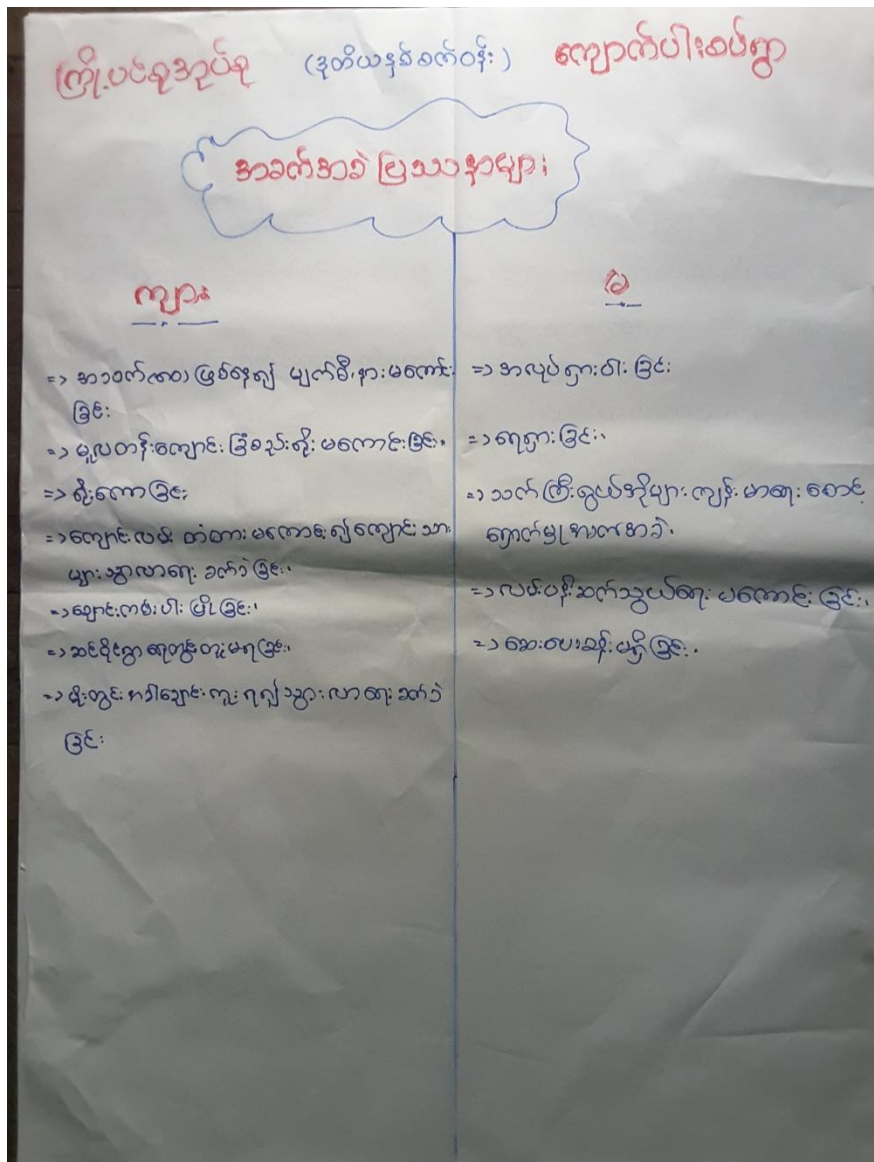 ကြို့ပင်စုအုပ်စု (ဒုတိယနှစ်စက်ဝန်း) ကျောက်ပါးစပ်ရွာ
အခက်အခဲ ပြဿနာများ
ကျား
=> အသက် ဖြစ်နေ၍ မျက်စိ၊ နားမကောင်း
ခြင်း
=> မူလတန်းကျောင်း ခြံစည်းရိုး မကောင်းခြင်း၊
=> ရိုးကော ခြင်း
=> ကျောင်းလမ်း တံတား မကောင်း၍ ကျောင်းသား
များ သွားလာရေး ခက်ခဲ ခြင်း၊
=> ချောင်းကမ်းပါး ပြို ခြင်း၊
=> ဆင်ပိုင်ရွာ ရေတွင်းတူးမရ ခြင်း၊
=> မိုးတွင်းအခါ ချောင်းကူး ရ၍ သွားလာရေး ခက်ခဲ
ခြင်း
မ
=> အလုပ်ရှားပါး ခြင်း
=> ရေရှား ခြင်း၊
=> သက်ကြီးရွယ်အိုများ ကျန်းမာရေး စောင့်
ရှောက်မှု အခက်အခဲ၊
=> လမ်းပန်းဆက်သွယ်ရေး မကောင်း ခြင်း၊
=> ဆေးပေးခန်း မရှိ ခြင်း၊